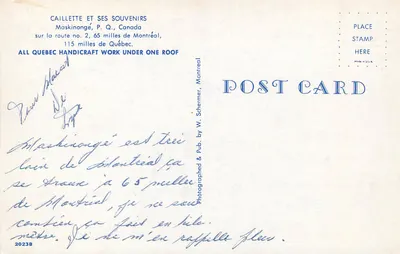 CAILLETTE ET SES SOUVENIRS
Maskinongé, P. Q., Canada
sur la route no. 2, 65 milles de Montréal,
115 milles de Québec.
ALL QUEBEC HANDICRAFT WORK UNDER ONE ROOF
PLACE
STAMP
HERE
POST CARD
Photographed & Pub. by W. Schermer, Montreal
De
Maskinongé est
loin de Montréal ça
se à 65 milles
de Montréal, je ne sais
combien ça fait en kilo
mètre. Je ne m'en rappelle plus.
20238